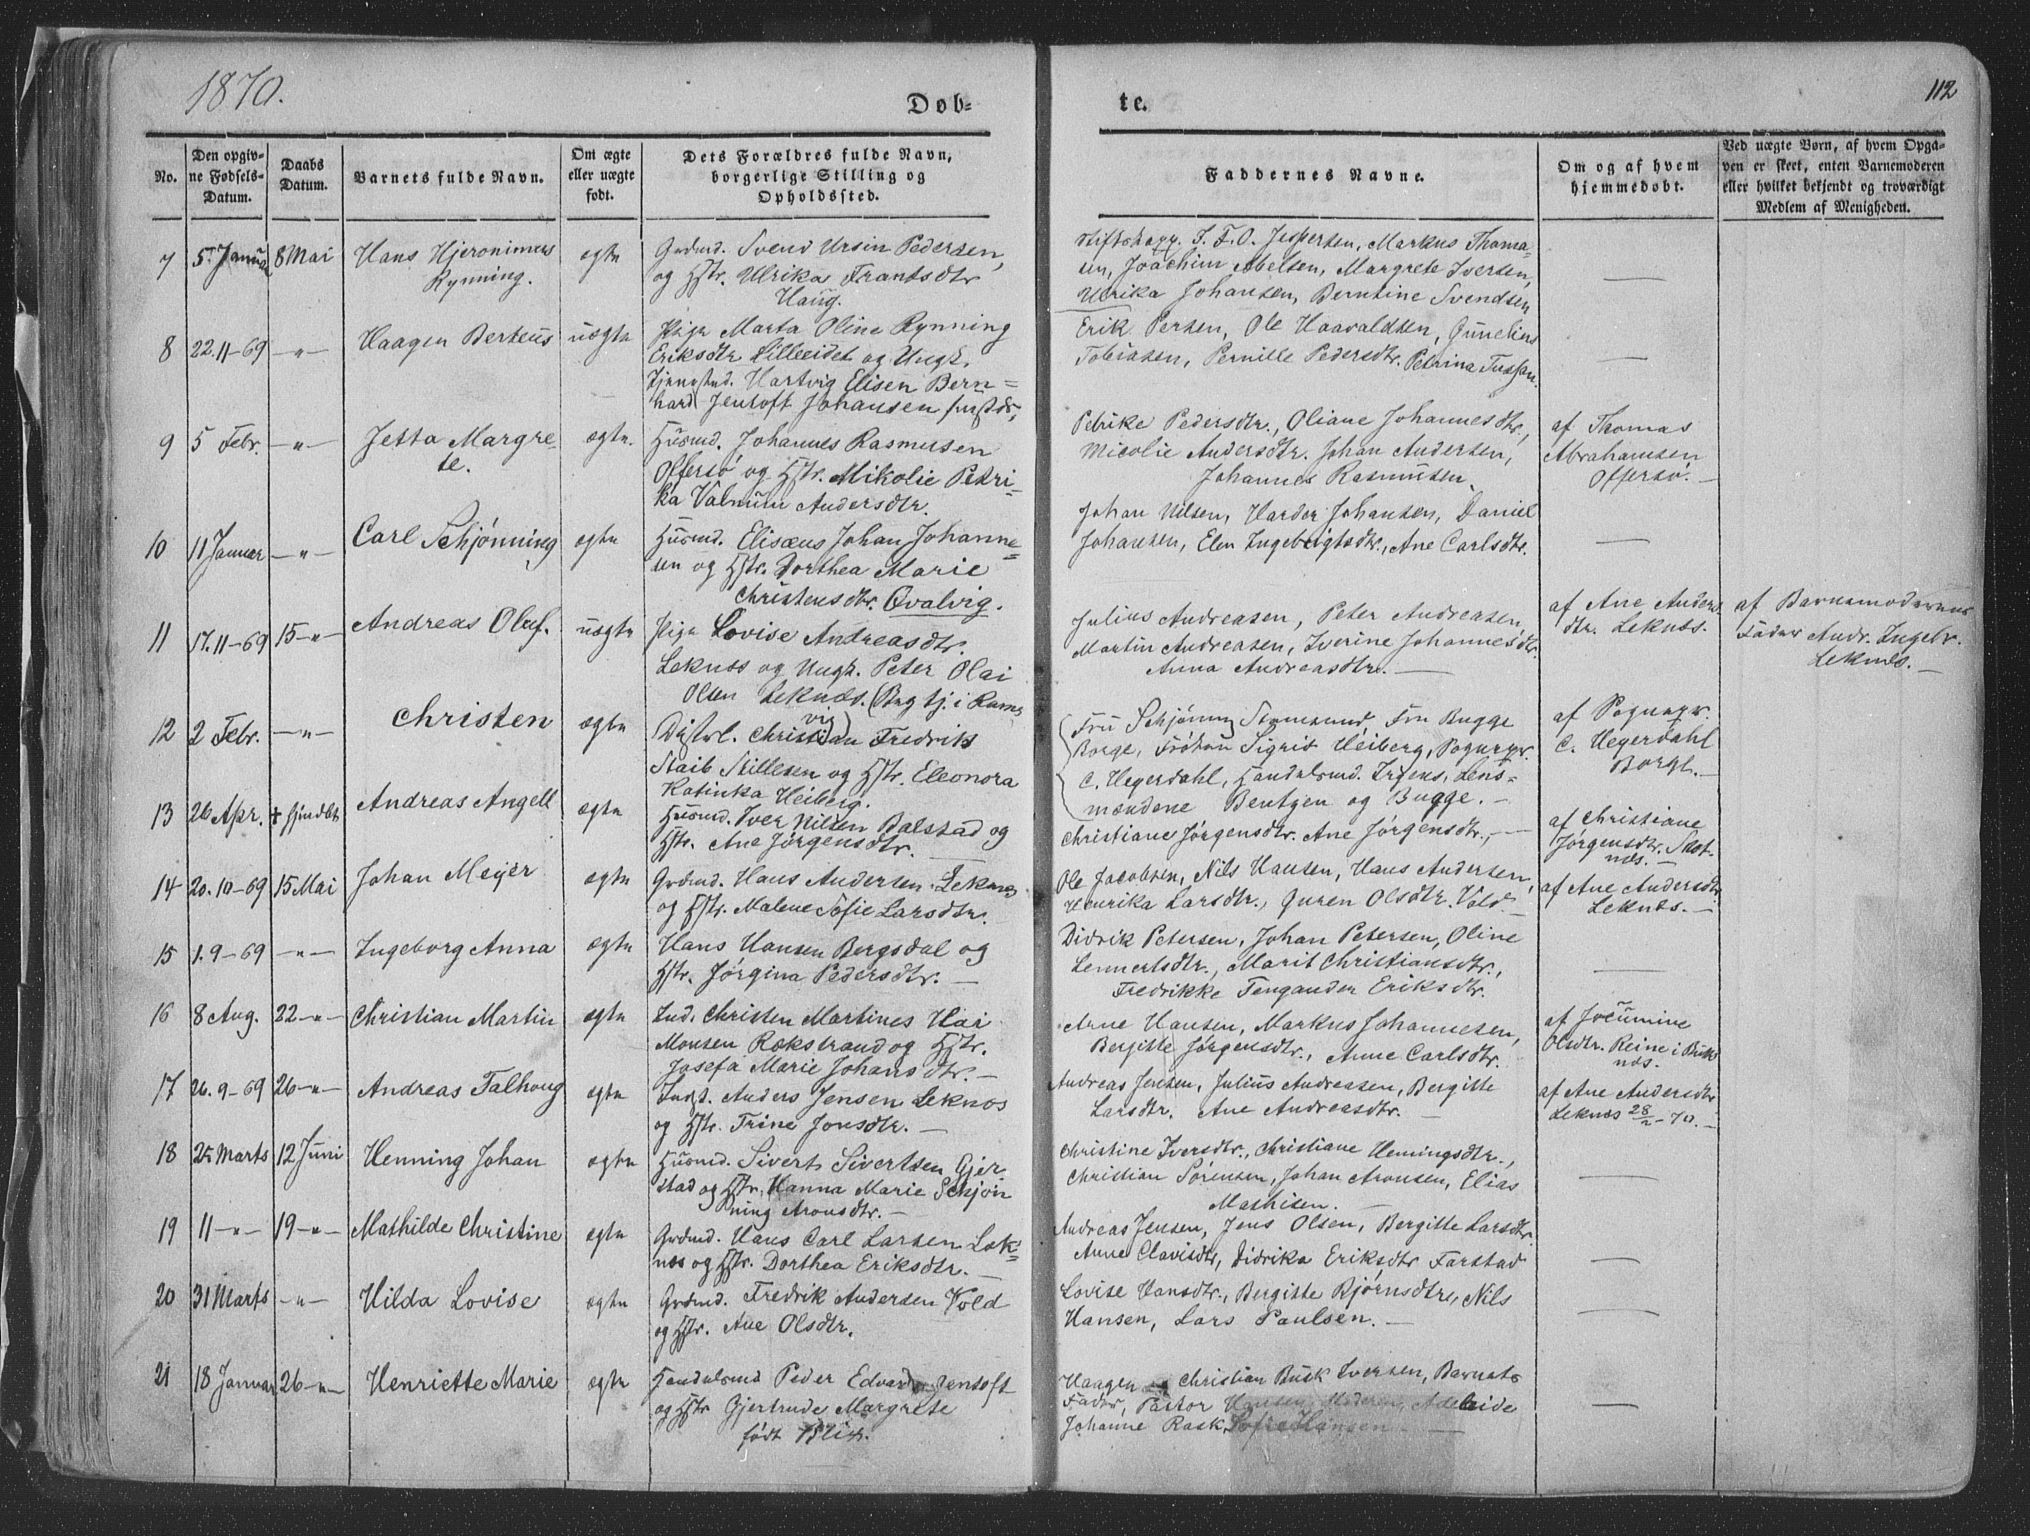 1870.
Døb-
te.
112
No.
Den opgiv-
ne Fødsels-
Datum.
Daabs
Datum.
Barnets fulde Navn.
Om ægte
eller uægte
født.
Dets Forældres fulde Navn,
borgerlige Stilling og
Opholdssted.
Faddernes Navne.
Om og af hvem
hjemmedøbt.
Ved uægte Børn, af hvem Opga-
ven er skeet, enten Barnemoderen
eller hvilket bekjendt og troværdigt
Medlem af Menigheden.
7 5 Januar 8 Mai Hans Hjeronimus ægte Grdmd. Svend Ursin Pedersen,
Rynning. og Hstr. Ulrika Frantsdtr
Haug.
Stiftskapp. J. F. O. Jespersen, Markus Thoma-
sen, Joachim Abelsen, Margrete Iversen,
Ulrika Johansen, Berntine Svendsen
8 22.11-69 -"- Haagen Berteus uægte Pige Marta Oline Rynning
Eriksdtr Lilleeidet og Ungk.
Hartvig Elisen Bern=
hard Jentoft Johansen
Erik Persen, Ole Haavaldsen,
Tobiasen, Pernille Pedersdtr. Petrina
9 5 Febr. -"- Jetta Margre- ægte. Husmd. Johannes Rasmusen
te. Offersø og Hstr. Mikolie Petri-
ka Valnum Andersdtr.
Petrike Pedersdtr., Oliane Johannesdtr,
Micolie Andersdtr. Johan Andersen,
Johannes Rasmusen.
af Thomas
Abrahamsen
Offersø. —
10 11 Januar -"- Carl Schjønning ægte Husmd. Elisæus Johan Johanne=
sen og Hstr. Dorthea Marie
Christensdtr. Qvalvig.
Johan Nilsen, Harder Johansen, Daniel
Johansen, Elen Ingebrigtsdtr., Ane Carlsdtr.
11 17.11-69 15 -"- Andreas Oluf. uægte Pige Lovise Andreasdtr.
Leknes og Ungk. Peter Olai
Olsen Leknæs.
Julius Andreasen, Peter Andreasen,
Martin Andreasen, Iverine Johannesdtr.
Anna Andreasdtr. —
af Ane Anders
dtr. Leknæs.
af Barnemoderens
Fader Andr. Ingebr.
Leknes. —
12 2 Febr. -"- Christen ægte Distrl. Christian Fredrik
Staib Stillesen og Hstr. Eleonora
Katinka Heiberg.
Fru Schjønning Stamsund, Fru Bugge
Borge, Frøken Sigrid Heiberg, Sognepr.
C. Hegerdahl, Handelsmd. Irgens, Lens-
mændene Bentzen og Bugge. —
af Sognepr.
C. Hegerdahl
Borge. —
13 26 Apr. Andreas Angell ægte Husmd. Iver Nilsen Balstad og
Hstr. Ane Jørgensdtr.
Christiane Jørgensdtr. Ane Jørgensdtr., —
af Christiane
Jørgensdtr.
14 20.10-69 15 Mai Johan Meyer ægte Grdmd. Hans Andersen Leknes
og Hstr. Malene Sofie Larsdtr.
Ole Jacobsen, Nils Hansen, Hans Andersen,
Henrika Larsdtr., Guren Olsdtr. Vold
af Ane Andersdtr
Leknes. —
15 1.9-69 -"- Ingeborg Anna ægte Hans Hansen Bergsdal og
Hstr. Jørgina Pedersdtr. —
Didrik Petersen, Johan Petersen, Oline
Lennertsdtr., Marit Christiansdtr.,
Fredrikke Tengander Eriksdtr.
16 8 Aug. 22 -"- Christian Martin ægte Ind. Christen Martines Kai
Monsen Rækstrand og Hstr.
Josefa Marie Johansdtr. —
Arne Hansen, Markus Johannesen,
Bergitte Jørgensdtr., Anne Carlsdtr.
af Jocumine
Olsdtr. Reine i Buks
næs.
17 26.9-69 26 -"- Andreas Falhoug ægte Indst. Anders Jensen Leknes
og Hstr. Trine Jonsdtr. —
Andreas Jensen, Julius Andreasen, Bergitte
Larsdtr. Ane Andreasdtr. —
af Ane Andersdtr
Leknes 28/2-70. —
18 25 Marts 12 Juni Henning Johan ægte Husmd. Sivert Sivertsen Gjer-
stad og Hstr. Hanna Marie Schjøn
ning Aronsdtr. —
Christine Iversdtr., Christiane Hemingsdtr.,
Christian Sørensen, Johan Aronsen, Elias
Mathisen. —
19 11 -"- 19 -"- Mathilde Christine ægte Grdmd. Hans Carl Larsen Lek-
nes og Hstr. Dorthea Eriksdtr. —
Andreas Jensen, Jens Olsen, Bergitte Larsdtr.
Anne Clavisdtr, Didrika Eriksdtr Farstad
20 31 Marts -"- Hilda Lovise ægte Grdmd. Fredrik Andersen Vold
og Hstr. Ane Olsdtr.
Lovise Hansdtr., Bergitte Bjørnsdtr, Nils
Hansen, Lars Paulsen. —
21 18 Januar 26 -"- Henriette Marie ægte Handelsmd Peder Edvard Jentoft
og Hstr Gjertrude Margrete
født Blix.
Haagen og Christian Busk Iversen, Barnets
Fader, Pastor Hansen, Moderen, Adelaide
Johanne Rask, Sofie Hansen —